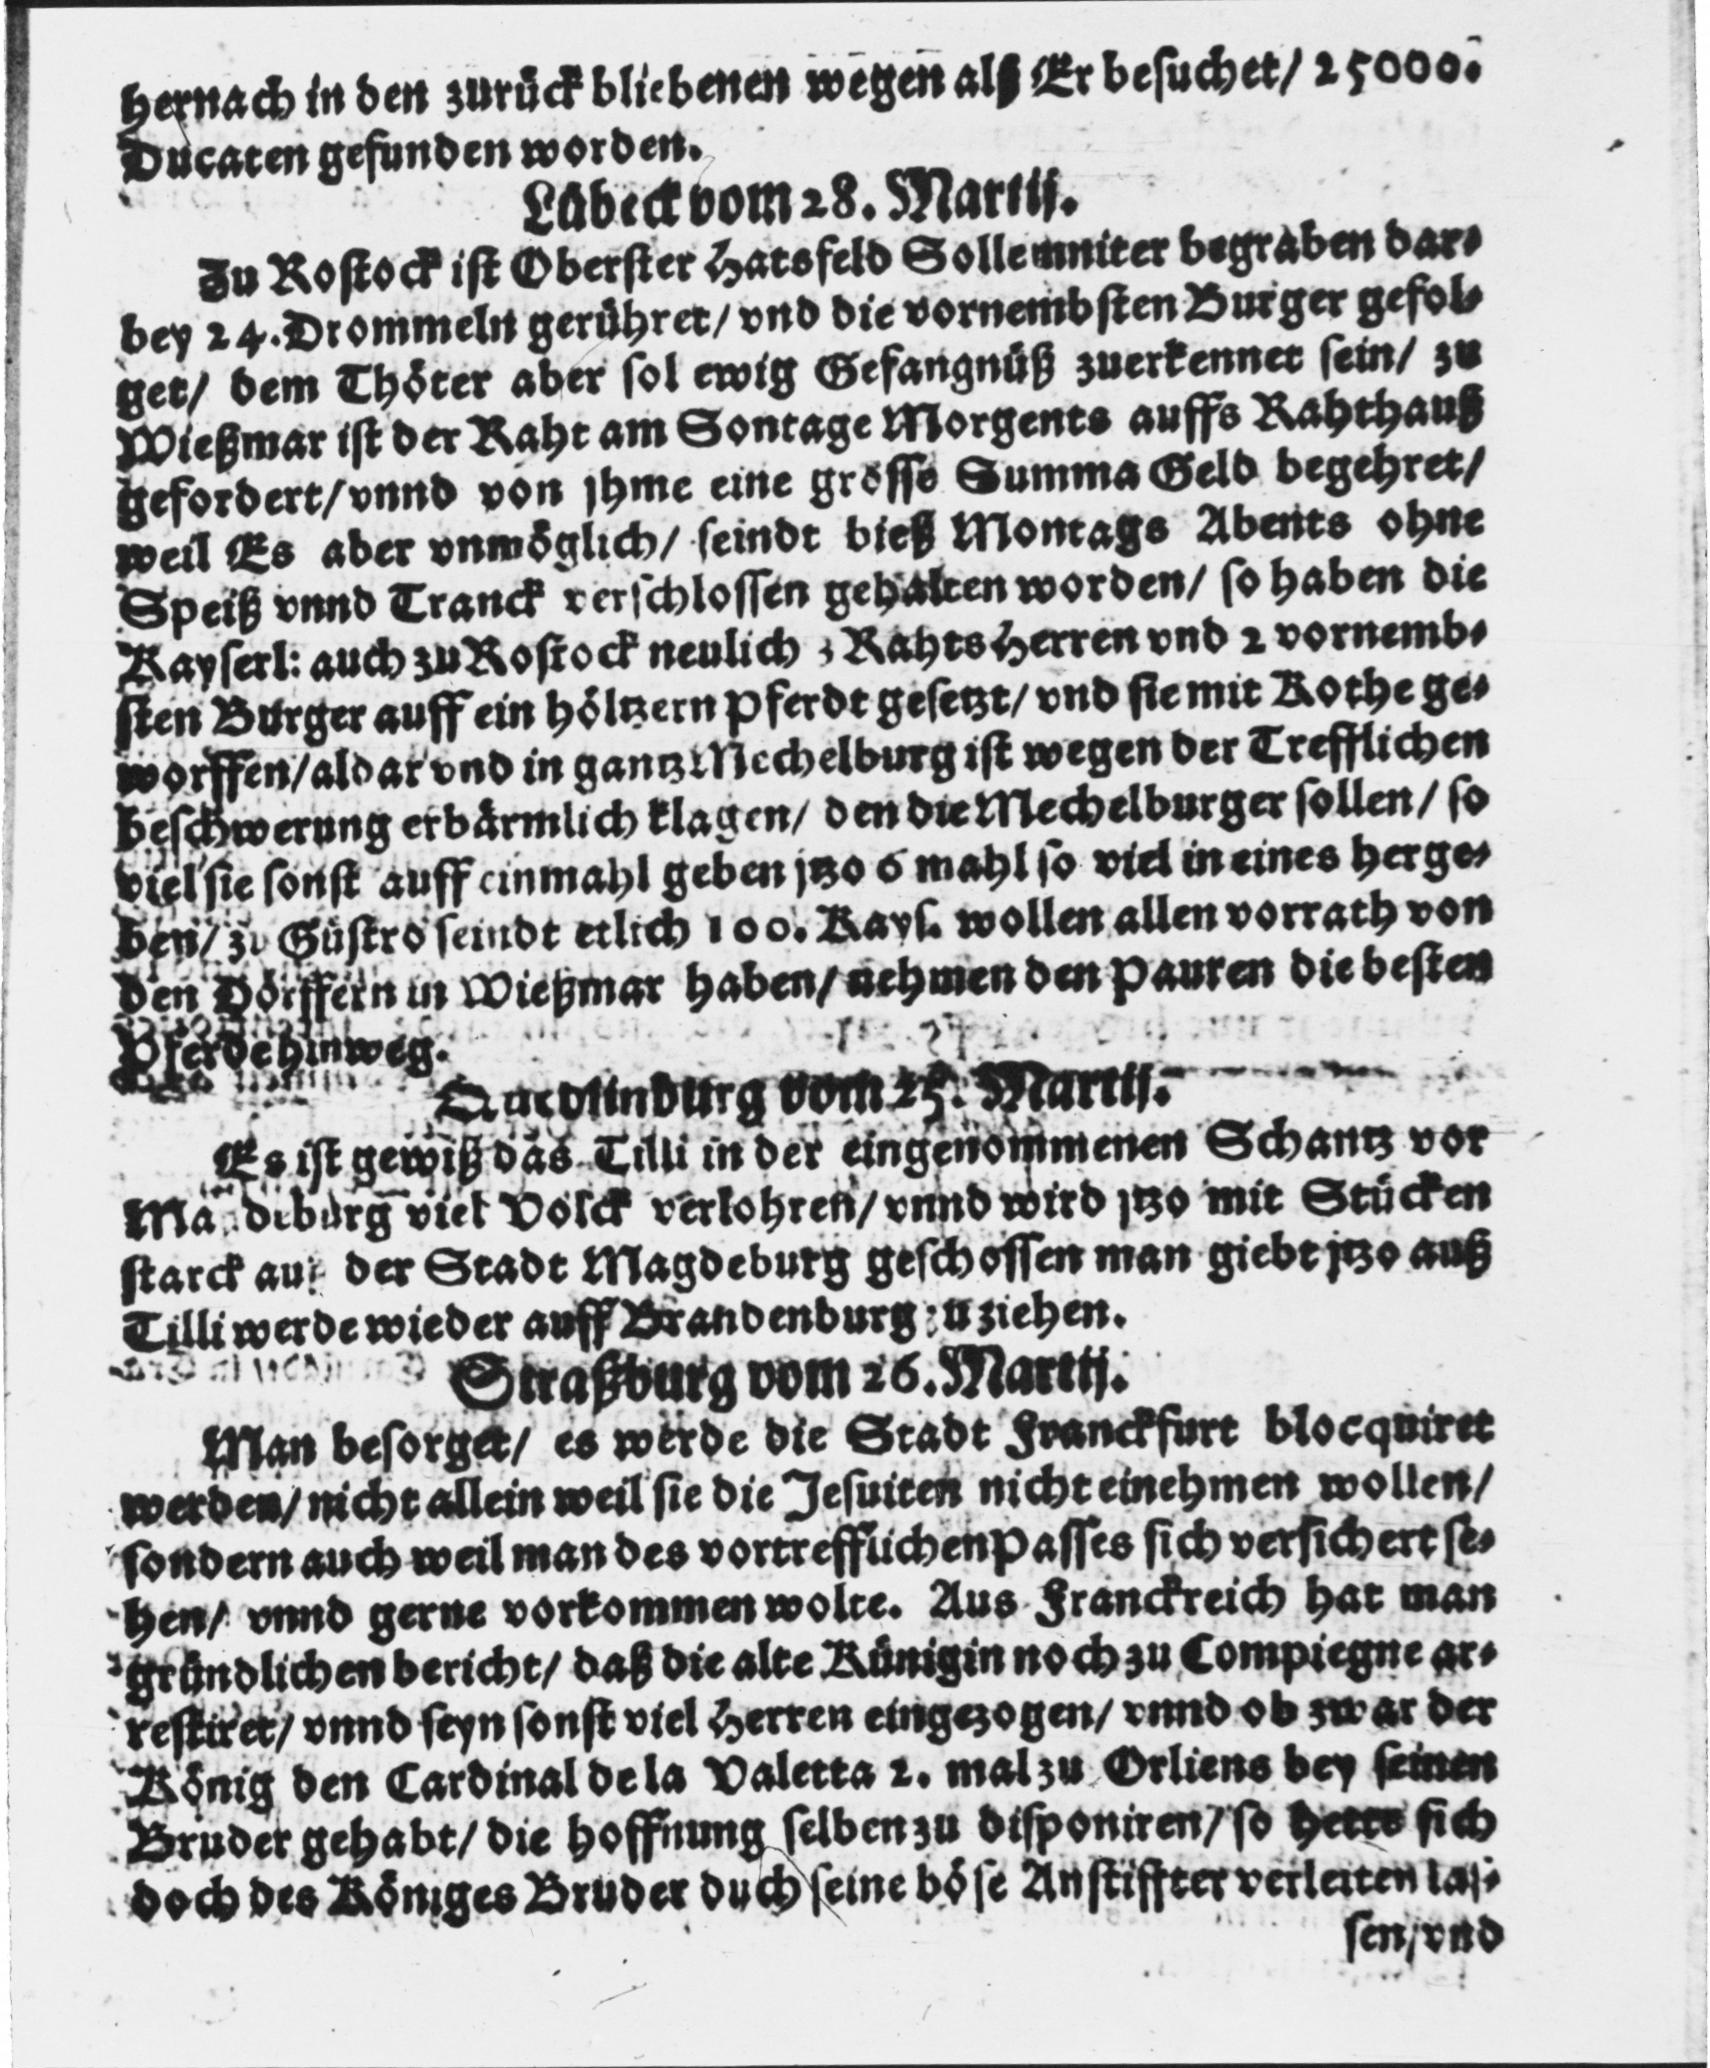 hernach in den zurück bliebenen wegen alß Er besuchet/ 25000.
Ducaten gefunden worden.
Lübeck vom 28. Martij.
Zu Rostock ist Oberster Hatsfeld Sollemniter begraben dar-
bey 24. Drommeln gerühret/ vnd die vornembsten Burger gefol-
get/ dem Thöter aber sol ewig Gefangnüß zuerkennet sein/ zu
Wießmar ist der Raht am Sontage Morgents auffs Rahthauß
gefordert/ vnnd von jhme eine grosse Summa Geld begehret/
weil Es aber vnmöglich/ seindt bieß Montags Abents ohne
Speiß vnnd Tranck verschlossen gehalten worden/ so haben die
Kayserl: auch zu Rostock neulich 3 Rahts Herren vnd 2 vornemb-
sten Burger auff ein höltzern Pferdt gesetzt/ vnd sie mit Kothe ge-
worffen/ aldar vnd in gantz Mechelburg ist wegen der Trefflichen
beschwerung erbärmlich klagen/ den die Mechelburger sollen/ so
viel sie sonst auff einmahl geben jtzo 6 mahl so viel in eines herge-
ben/ zu Güstro seindt etlich 100. Kays. wollen allen vorrath von
den Dörffern in Wießmar haben/ nehmen den Pauren die besten
Pferde hinweg.
Quedlinburg vom 25. Martij.
Es ist gewiß das Tilli in der eingenommenen Schantz vor
Magdeburg viel Volck verlohren/ vnnd wird jtzo mit Stücken
starck auß der Stadt Magdeburg geschossen man giebt jtzo auß
Tilli werde wieder auff Brandenburg zu ziehen.
Straßburg vom 26. Martij.
Man besorget/ es werde die Stadt Franckfurt blocquiret
werden/ nicht allein weil sie die Jesuiten nicht einehmen wollen/
sondern auch weil man des vortrefflichen Passes sich versichert se-
hen/ vnnd gerne vorkommen wolte. Aus Franckreich hat man
gründlichen bericht/ daß die alte Künigin noch zu Compiegne ar-
restiret/ vnnd seyn sonst viel Herren eingezogen/ vnnd ob zwar der
König den Cardinal de la Valetta 2. mal zu Orliens bey seinen
Bruder gehabt/ die hoffnung selben zu disponiren/ so hette sich
doch des Königes Bruder duch seine böse Anstiffter verleiten las-
sen/ vnd